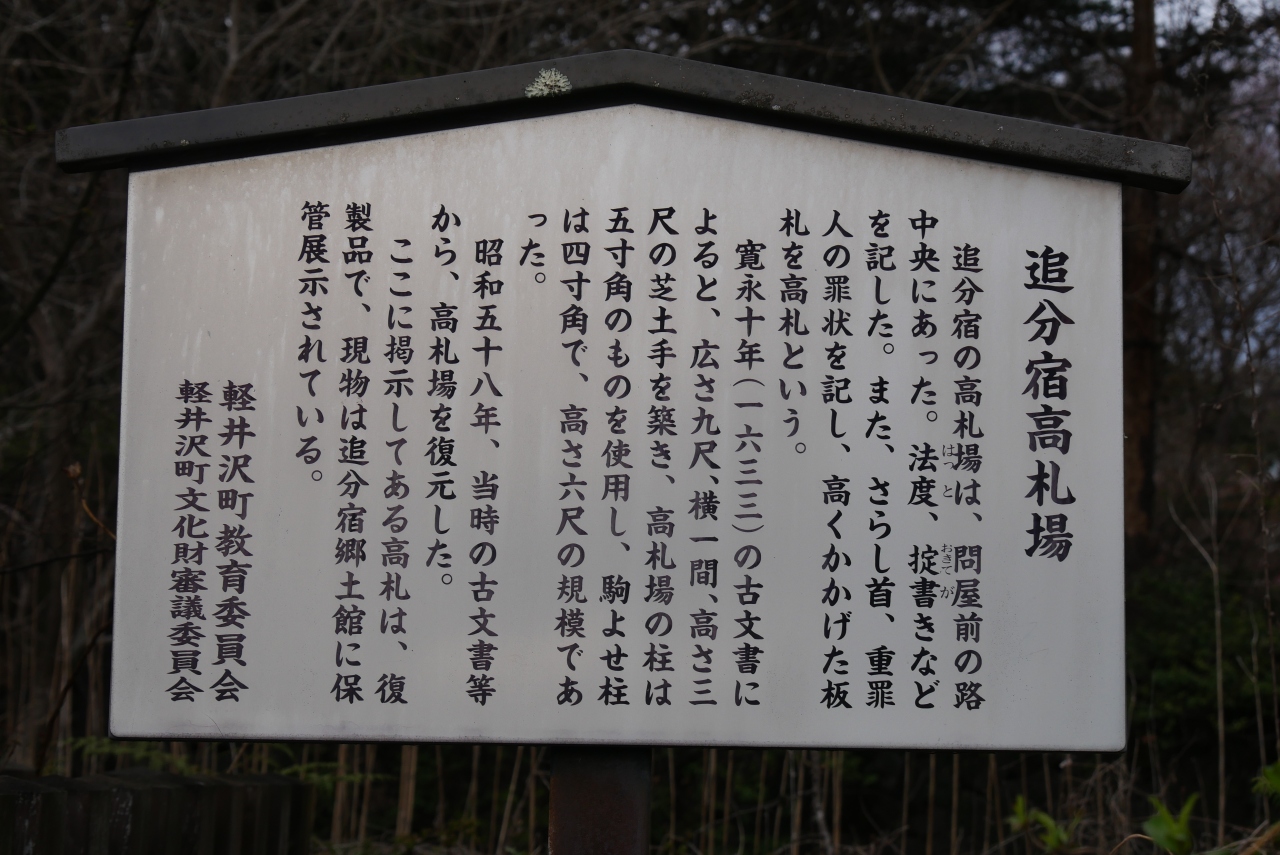 追分宿高札場
追分宿の高札場は、問屋前の路
中央にあった。法度、掟書きなど
はっと
おきてが
を記した。また、さらし首、重罪
人の罪状を記し、高くかかげた板
札を高札という。
寛永十年(一六三三)の古文書に
よると、広さ九尺、横一間、高さ三
尺の芝土手を築き、高札場の柱は
五寸角のものを使用し、駒よせ柱
は四寸角で、高さ六尺の規模であ
った。
昭和五十八年、当時の古文書等
から、高札場を復元した。
ここに掲示してある高札は、復
製品で、現物は追分宿郷土館に保
管展示されている。
軽井沢町教育委員会
軽井沢町文化財審議委員会